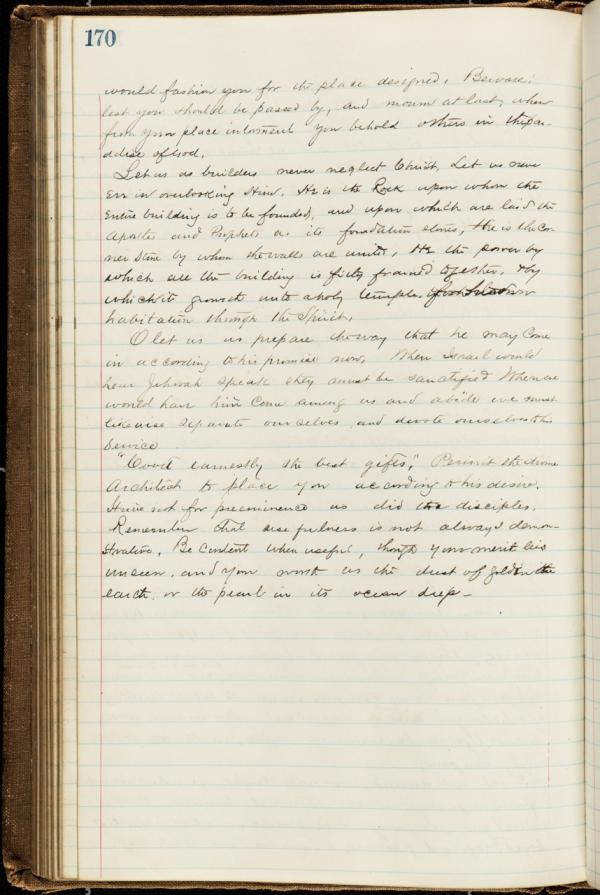 170
would fashion you for the place designed. Beware!
lest you should be passed by, and mourn at last, when
from your place interment you behold others in the pa-
adise of God.
Let us as builders never neglect Christ. Let us never
Err in overlooking Him. He is the Rock upon whom the
Entire building is to be founded, and upon which are laid the
Apostles and Prophets as its foundation stones, He is the Cor-
ner Stone by whom the walls are united, He the power by
which all the building is fitly framed together, & by
which it groweth unto a holy temple, for
habitation through the Spirit.
O let us us prepare the way that he may Come
in according to his promise now. When Israel would
hear Jehovah speak they must be sanctified When we
would have him Come among us and abide we must
likewise separate ourselves, and devote ourselves to his
Service
"Covet earnestly the best gifts," Permit the divine
Architect to place you according to his desire.
Strive not for preeminence as did the disciples.
Remember that usefulness is not always demon-
strative. Be Content when useful, though your merit lies
unseen, and your worth as the dust of gold in the
Earth, or the pearl in its ocean deep-